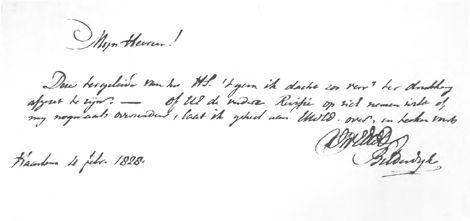 Mijn Heeren!
Dus tergeleide van het HS. 't geen ik dacht zoo verr' ter drukking
afgezet te zijn. — Of UE de verdere Revisie op zich nemen wilt of
my nogmaals overzenden, laat ik geheel aan UWEd. over, en
Haarlem 4 febr. 1828.
Bilderdyk